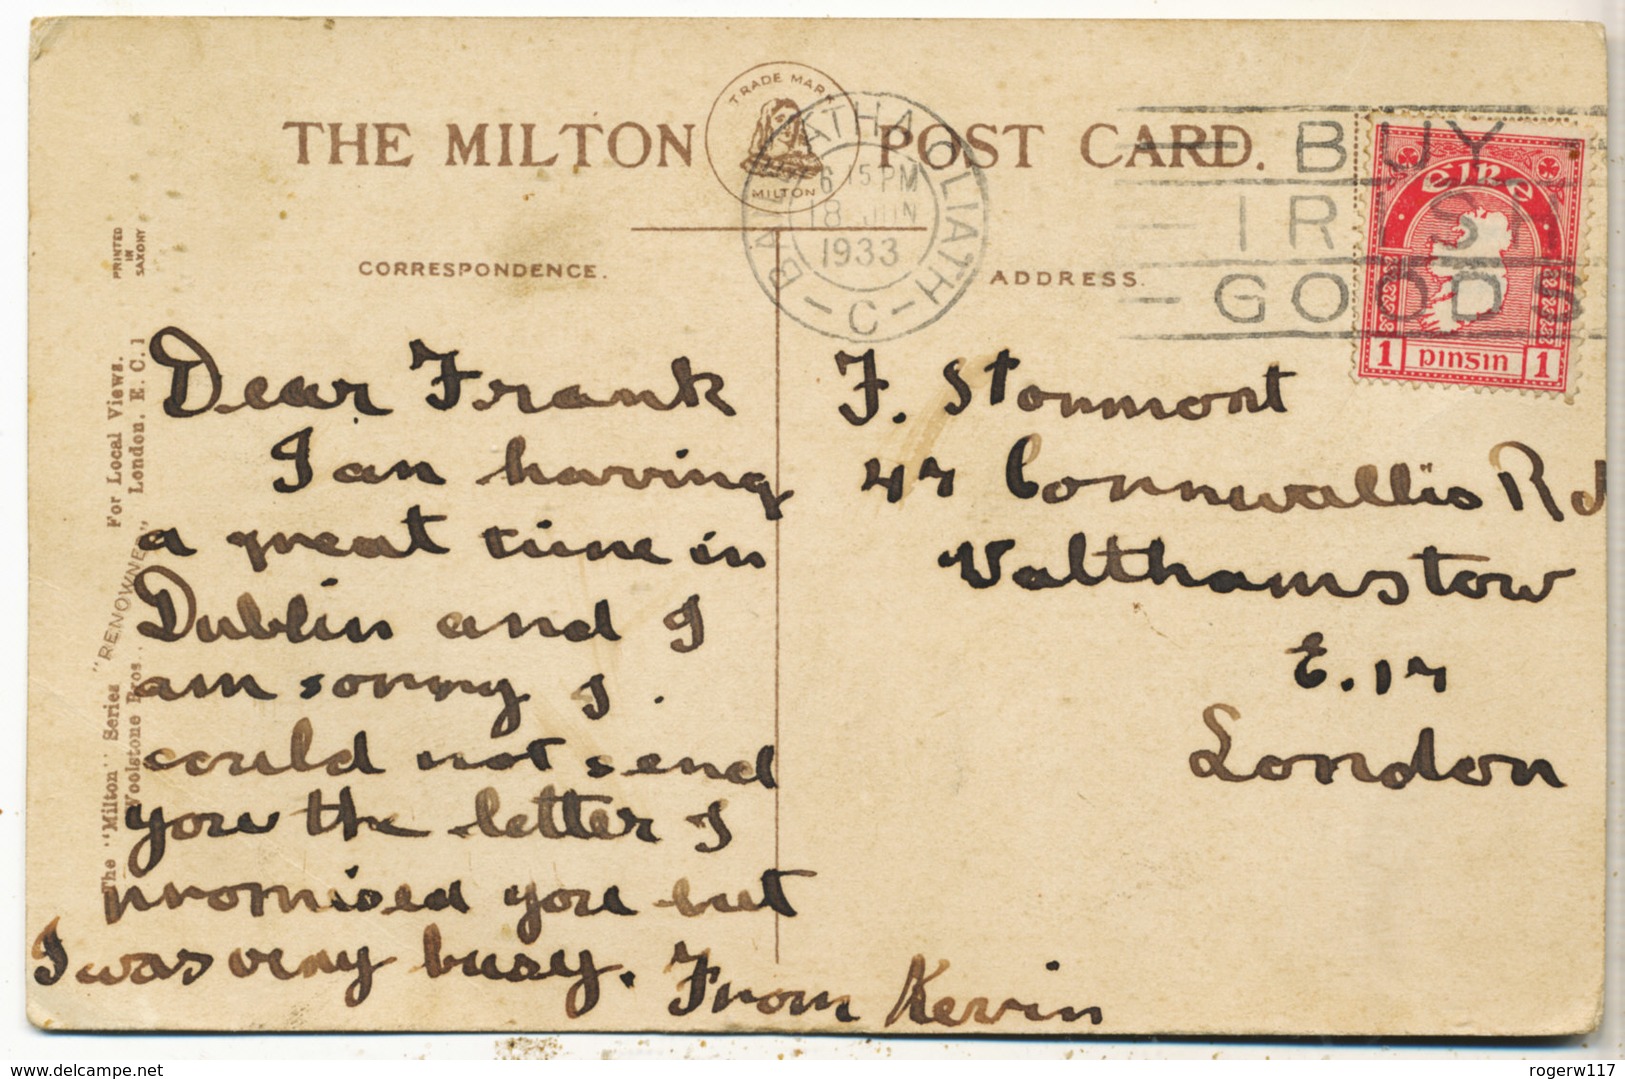 THE MILTON POST CARD.
TRADE MARK
MILTON
BAILE ATHA CLIATH
C
6 15 PM
18 JUN
1933
BUY
IRISH
GOODS
eire
1 pinsin 1
PRINTED
IN
SAXONY
CORRESPONDENCE.
ADDRESS.
The "Milton" Series "RENOWNED" For Local Views.
Woolstone Bros., London. E. C. 1
Dear Frank
I an having
a great time in
Dublin and I
am sorry I
could not send
you the letter I
promised you but
I was very busy. From Kevin
F. Stonmont
47 Cornwallis Rd
Walthamstow
E.17
London
delcampe.net
rogerw117